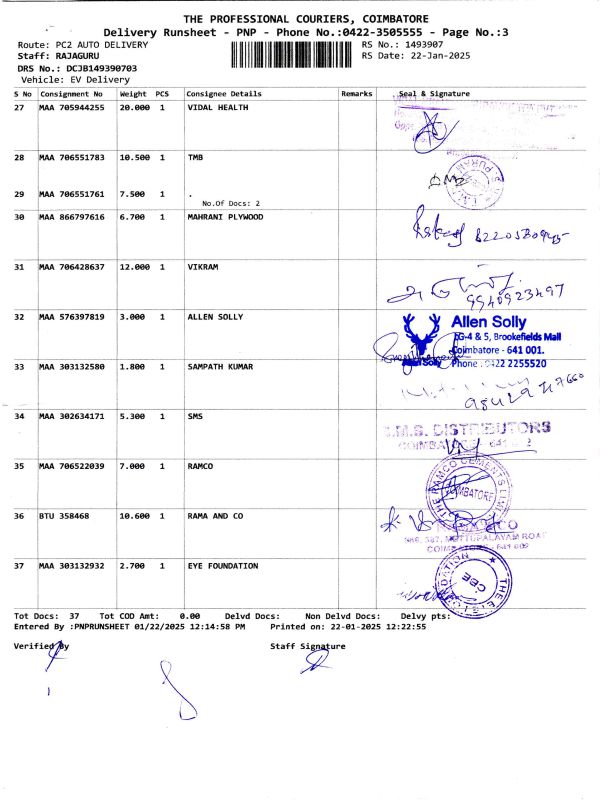 THE PROFESSIONAL COURIERS, COIMBATORE
Delivery Runsheet - PNP - Phone No.:0422-3505555 - Page No.:3
Route: PC2 AUTO DELIVERY RS No.: 1493907
Staff: RAJAGURU RS Date: 22-Jan-2025
DRS No.: DCJB149390703
Vehicle: EV Delivery
S No Consignment No Weight PCS Consignee Details Remarks Seal & Signature
27 MAA 705944255 20.000 1 VIDAL HEALTH
28 MAA 706551783 10.500 1 TMB
29 MAA 706551761 7.500 1 .
No.Of Docs: 2
30 MAA 866797616 6.700 1 MAHRANI PLYWOOD
31 MAA 706428637 12.000 1 VIKRAM
32 MAA 576397819 3.000 1 ALLEN SOLLY
Allen Solly
LG-4 & 5, Brookefields Mall
Coimbatore - 641 001.
Allen Solly Phone : 0422 2255520
33 MAA 303132580 1.800 1 SAMPATH KUMAR
34 MAA 302634171 5.300 1 SMS
S.M.S. DISTRIBUTORS
35 MAA 706522039 7.000 1 RAMCO
THE RAMCO CEMENTS LIMITED
COIMBATORE
36 BTU 358468 10.600 1 RAMA AND CO
METTUPALAYAM ROAD
COIMBATORE - 641 002
37 MAA 303132932 2.700 1 EYE FOUNDATION
THE EYE FOUNDATION
CBE
Tot Docs: 37 Tot COD Amt: 0.00 Delvd Docs: Non Delvd Docs: Delvy pts:
Entered By :PNPRUNSHEET 01/22/2025 12:14:58 PM Printed on: 22-01-2025 12:22:55
Verified By Staff Signature